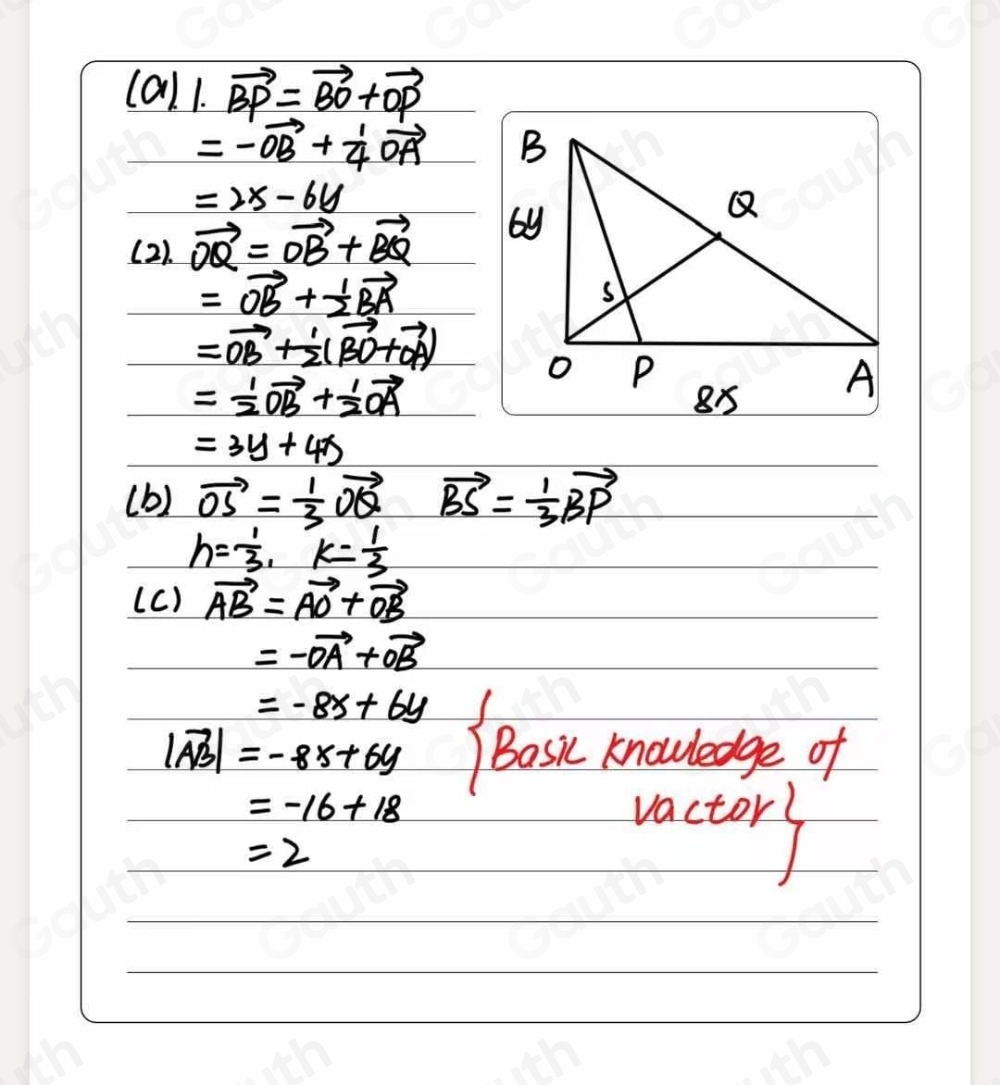 (a). 1. BP⃗ = BO⃗ + OP⃗
= -OB⃗ + 1/4 OA⃗
= 2x - 6y
(2). OQ⃗ = OB⃗ + BQ⃗
= OB⃗ + 1/2 BA⃗
= OB⃗ + 1/2 (BO⃗ + OA⃗)
= 1/2 OB⃗ + 1/2 OA⃗
= 3y + 4x
B
Q
6y
S
O P A
8x
(b) OS⃗ = 1/3 OQ⃗ BS⃗ = 1/3 BP⃗
h = 1/3, K = 1/3
(c) AB⃗ = AO⃗ + OB⃗
= -OA⃗ + OB⃗
= -8x + 6y
|AB⃗| = -8x + 6y
= -16 + 18
= 2
{Basic knowledge of
vactor}
Gauth